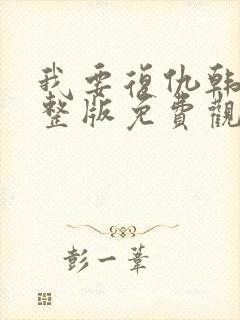 我要復仇韓
整版免費觀
彭一葦